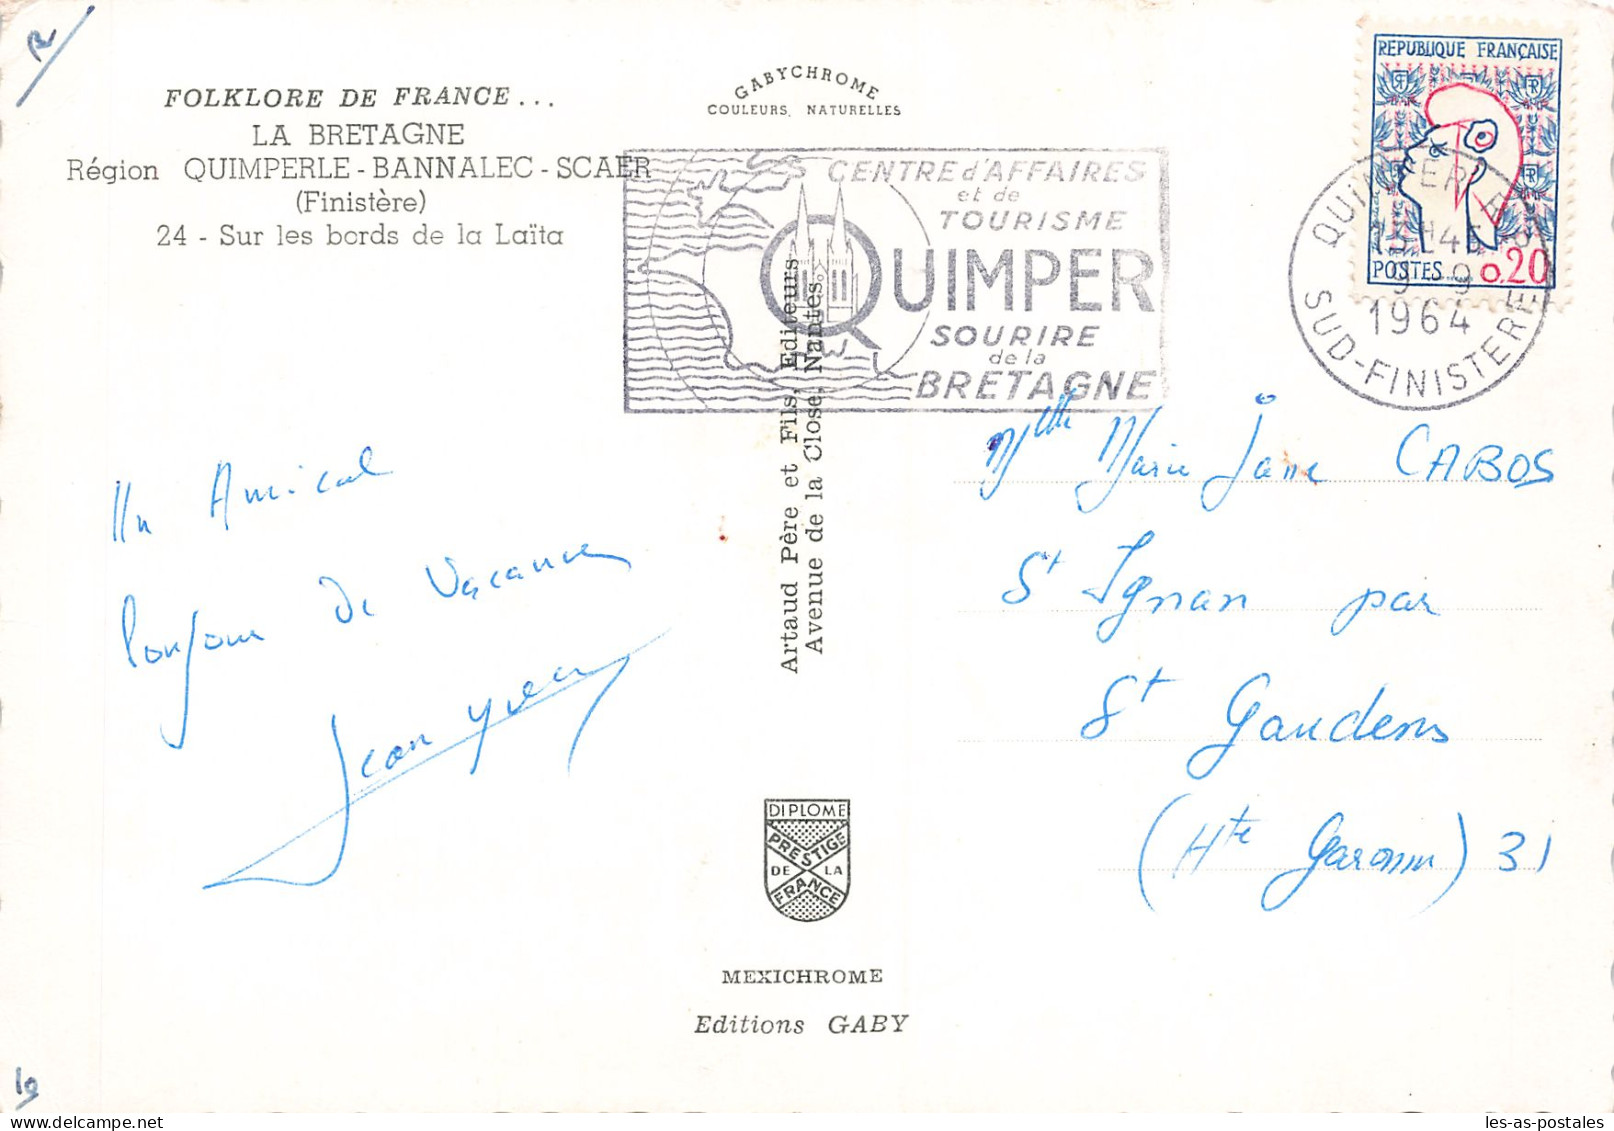 FOLKLORE DE FRANCE...
LA BRETAGNE
Région QUIMPERLE - BANNALEC - SCAER
(Finistère)
24 - Sur les bords de la Laïta
GABYCHROME
COULEURS NATURELLES
CENTRE d'AFFAIRES
et de
TOURISME
QUIMPER
SOURIRE
de la
BRETAGNE
REPUBLIQUE FRANÇAISE
POSTES 0.20
RF
QUIMPER
45
9 - 9
1964
SUD-FINISTERE
Un Amical
Bonjour de Vacances
Jean Yves
Artaud Père et Fils, Editeurs
Avenue de la Close, Nantes.
Mlle Marie Jane CABOS
St Ignan par
St Gaudens
(Hte Garonne) 31
DIPLOME
PRESTIGE
DE LA
FRANCE
MEXICHROME
Editions GABY
19
les-as-postales